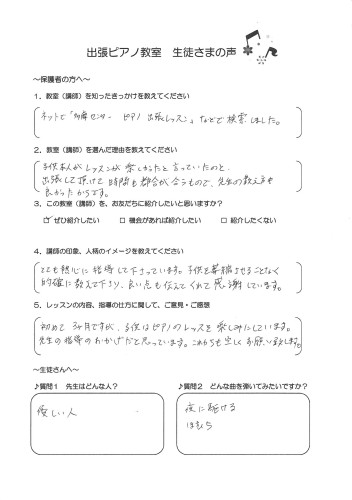 出張ピアノ教室　生徒さまの声
～保護者の方へ～
1、教室（講師）を知ったきっかけを教えてください
ネットで「多摩センター　ピアノ　出張レッスン」などで検索しました。
2、教室（講師）を選んだ理由を教えてください
子供本人がレッスンが楽しかったと言っていたのと、
出張して頂けて時間も都合が合うもので、先生の教え方も
良かったからです。
3、この教室（講師）を、お友だちに紹介したいと思いますか？
☑ ぜひ紹介したい　□ 機会があれば紹介したい　□ 紹介したくない
4、講師の印象、人柄のイメージを教えてください
とても熱心に指導して下さっています。子供を萎縮させることなく
的確に教えて下さり、良い点も伝えてくれて感謝しています。
5、レッスンの内容、指導の仕方に関して、ご意見・ご感想
初めて3ヶ月ですが、子供はピアノのレッスンを楽しみにしています。
先生の指導のおかげだと思っています。これからも宜しくお願い致します。
～生徒さんへ～
♪質問1　先生はどんな人？
優しい人
♪質問2　どんな曲を弾いてみたいですか？
夜に駆ける
ほむら